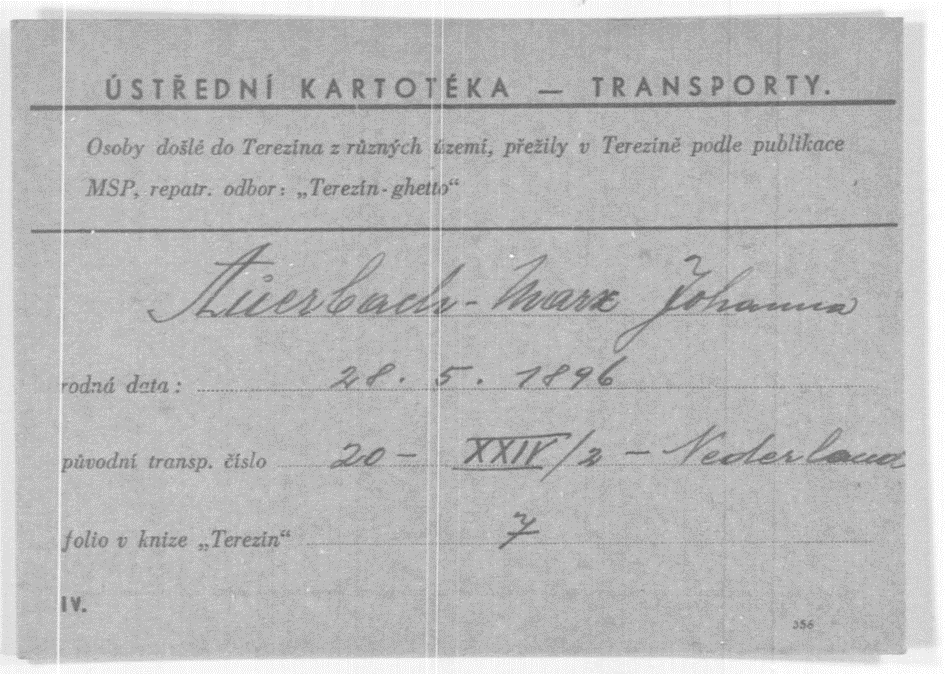 ÚSTŘEDNÍ KARTOTÉKA — TRANSPORTY.
Osoby došlé do Terezína z různých území, přežily v Terezíně podle publikace
MSP, repatr. odbor: „Terezín-ghetto“
Auerbach-Marx Johanna
rodná data: 28. 5. 1896
původní transp. číslo 20- XXIV/2 - Nederland
folio v knize „Terezin“ 7
IV.
356